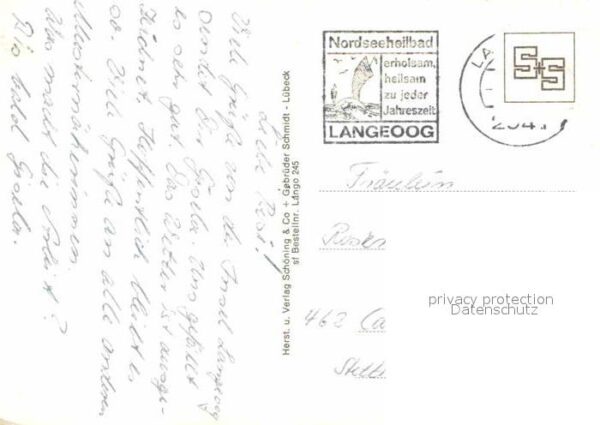 Liebe Rosi!
Viele Grüße von der Insel Langeoog
sendet Dir Gisela. Uns gefällt
es sehr gut. Das Wetter ist ausge-
zeichnet. Hoffentlich bleibt es
so. Viele Grüße an alle anderen
Was macht die Arbeit?
Bis bald Gisela.
Herst. u. Verlag Schöning & Co + Gebrüder Schmidt - Lübeck
sf Bestellnr. Lango 245
Nordseeheilbad
erholsam,
heilsam
zu jeder
Jahreszeit
LANGEOOG
LA
S+S
Fräulein
462 Ca
privacy protection
Datenschutz